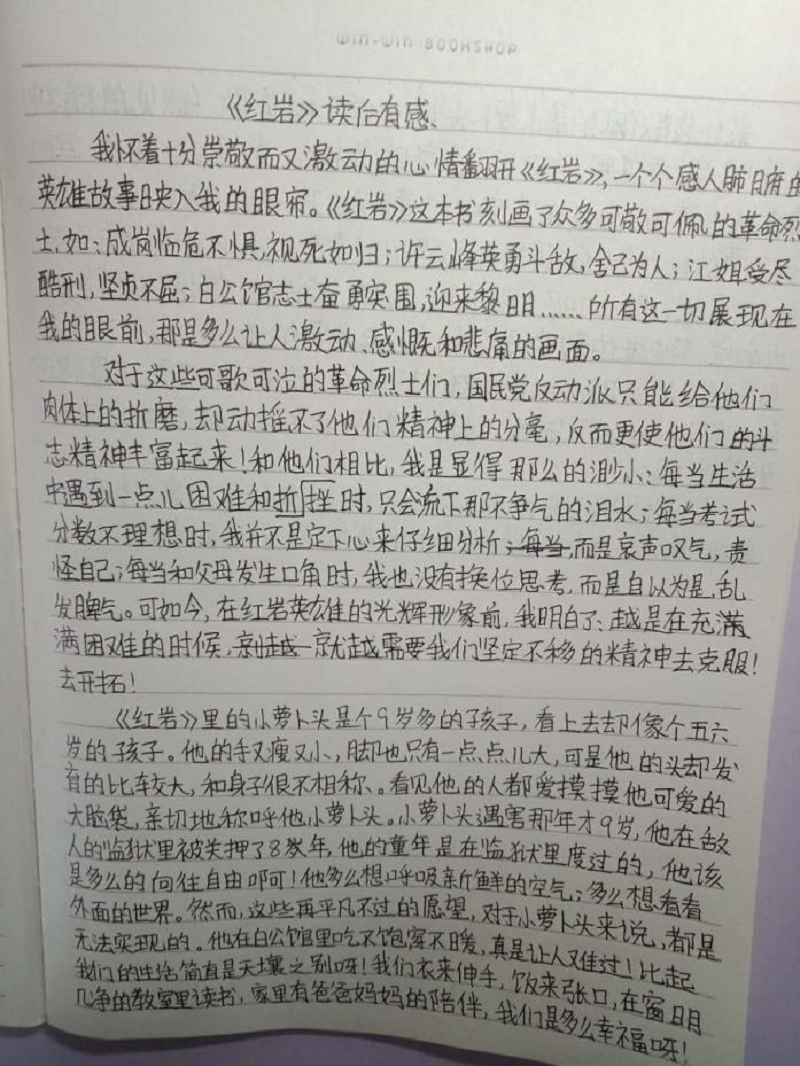 WIN-WIN BOOKSHOP
《红岩》读后有感、
我怀着十分崇敬而又激动的心情翻开《红岩》,一个个感人肺腑的
英雄故事映入我的眼帘。《红岩》这本书刻画了众多可敬可佩的革命烈
士,如:成岗临危不惧,视死如归;许云峰英勇斗敌,舍己为人;江姐受尽
酷刑,坚贞不屈;白公馆志士奋勇突围,迎来黎明……所有这一切展现在
我的眼前,那是多么让人激动、感慨和悲痛的画面。
对于这些可歌可泣的革命烈士们,国民党反动派只能给他们
肉体上的折磨,却动摇不了他们精神上的分毫,反而更使他们的斗
志精神丰富起来!和他们相比,我是显得那么的渺小:每当生活
中遇到一点儿困难和折挫时,只会流下那不争气的泪水;每当考试
分数不理想时,我并不是定下心来仔细分析;每当而是哀声叹气,责
怪自己;每当和父母发生口角时,我也没有换位思考,而是自以为是,乱
发脾气。可如今,在红岩英雄的光辉形象前,我明白了:越是在充满
满困难的时候,就越需要我们坚定不移的精神去克服!
去开拓!
《红岩》里的小萝卜头是个9岁多的孩子,看上去却像个五六
岁的孩子。他的手又瘦又小,脚也只有一点点儿大,可是他的头却发
育的比较大,和身子很不相称、。看见他的人都爱摸摸他可爱的
大脑袋,亲切地称呼他小萝卜头。小萝卜头遇害那年才9岁,他在敌
人的监狱里被关押了8岁年,他的童年是在监狱里度过的,他该
是多么的向往自由啊可!他多么想呼吸新鲜的空气;多么想看看
外面的世界。然而,这些再平凡不过的愿望,对于小萝卜头来说,都是
无法实现的。他在白公馆里吃不饱穿不暖,真是让人难过!比起
我们的生活简直是天壤之别呀!我们衣来伸手,饭来张口,在窗明
几净的教室里读书,家里有爸爸妈妈的陪伴,我们是多么幸福呀!